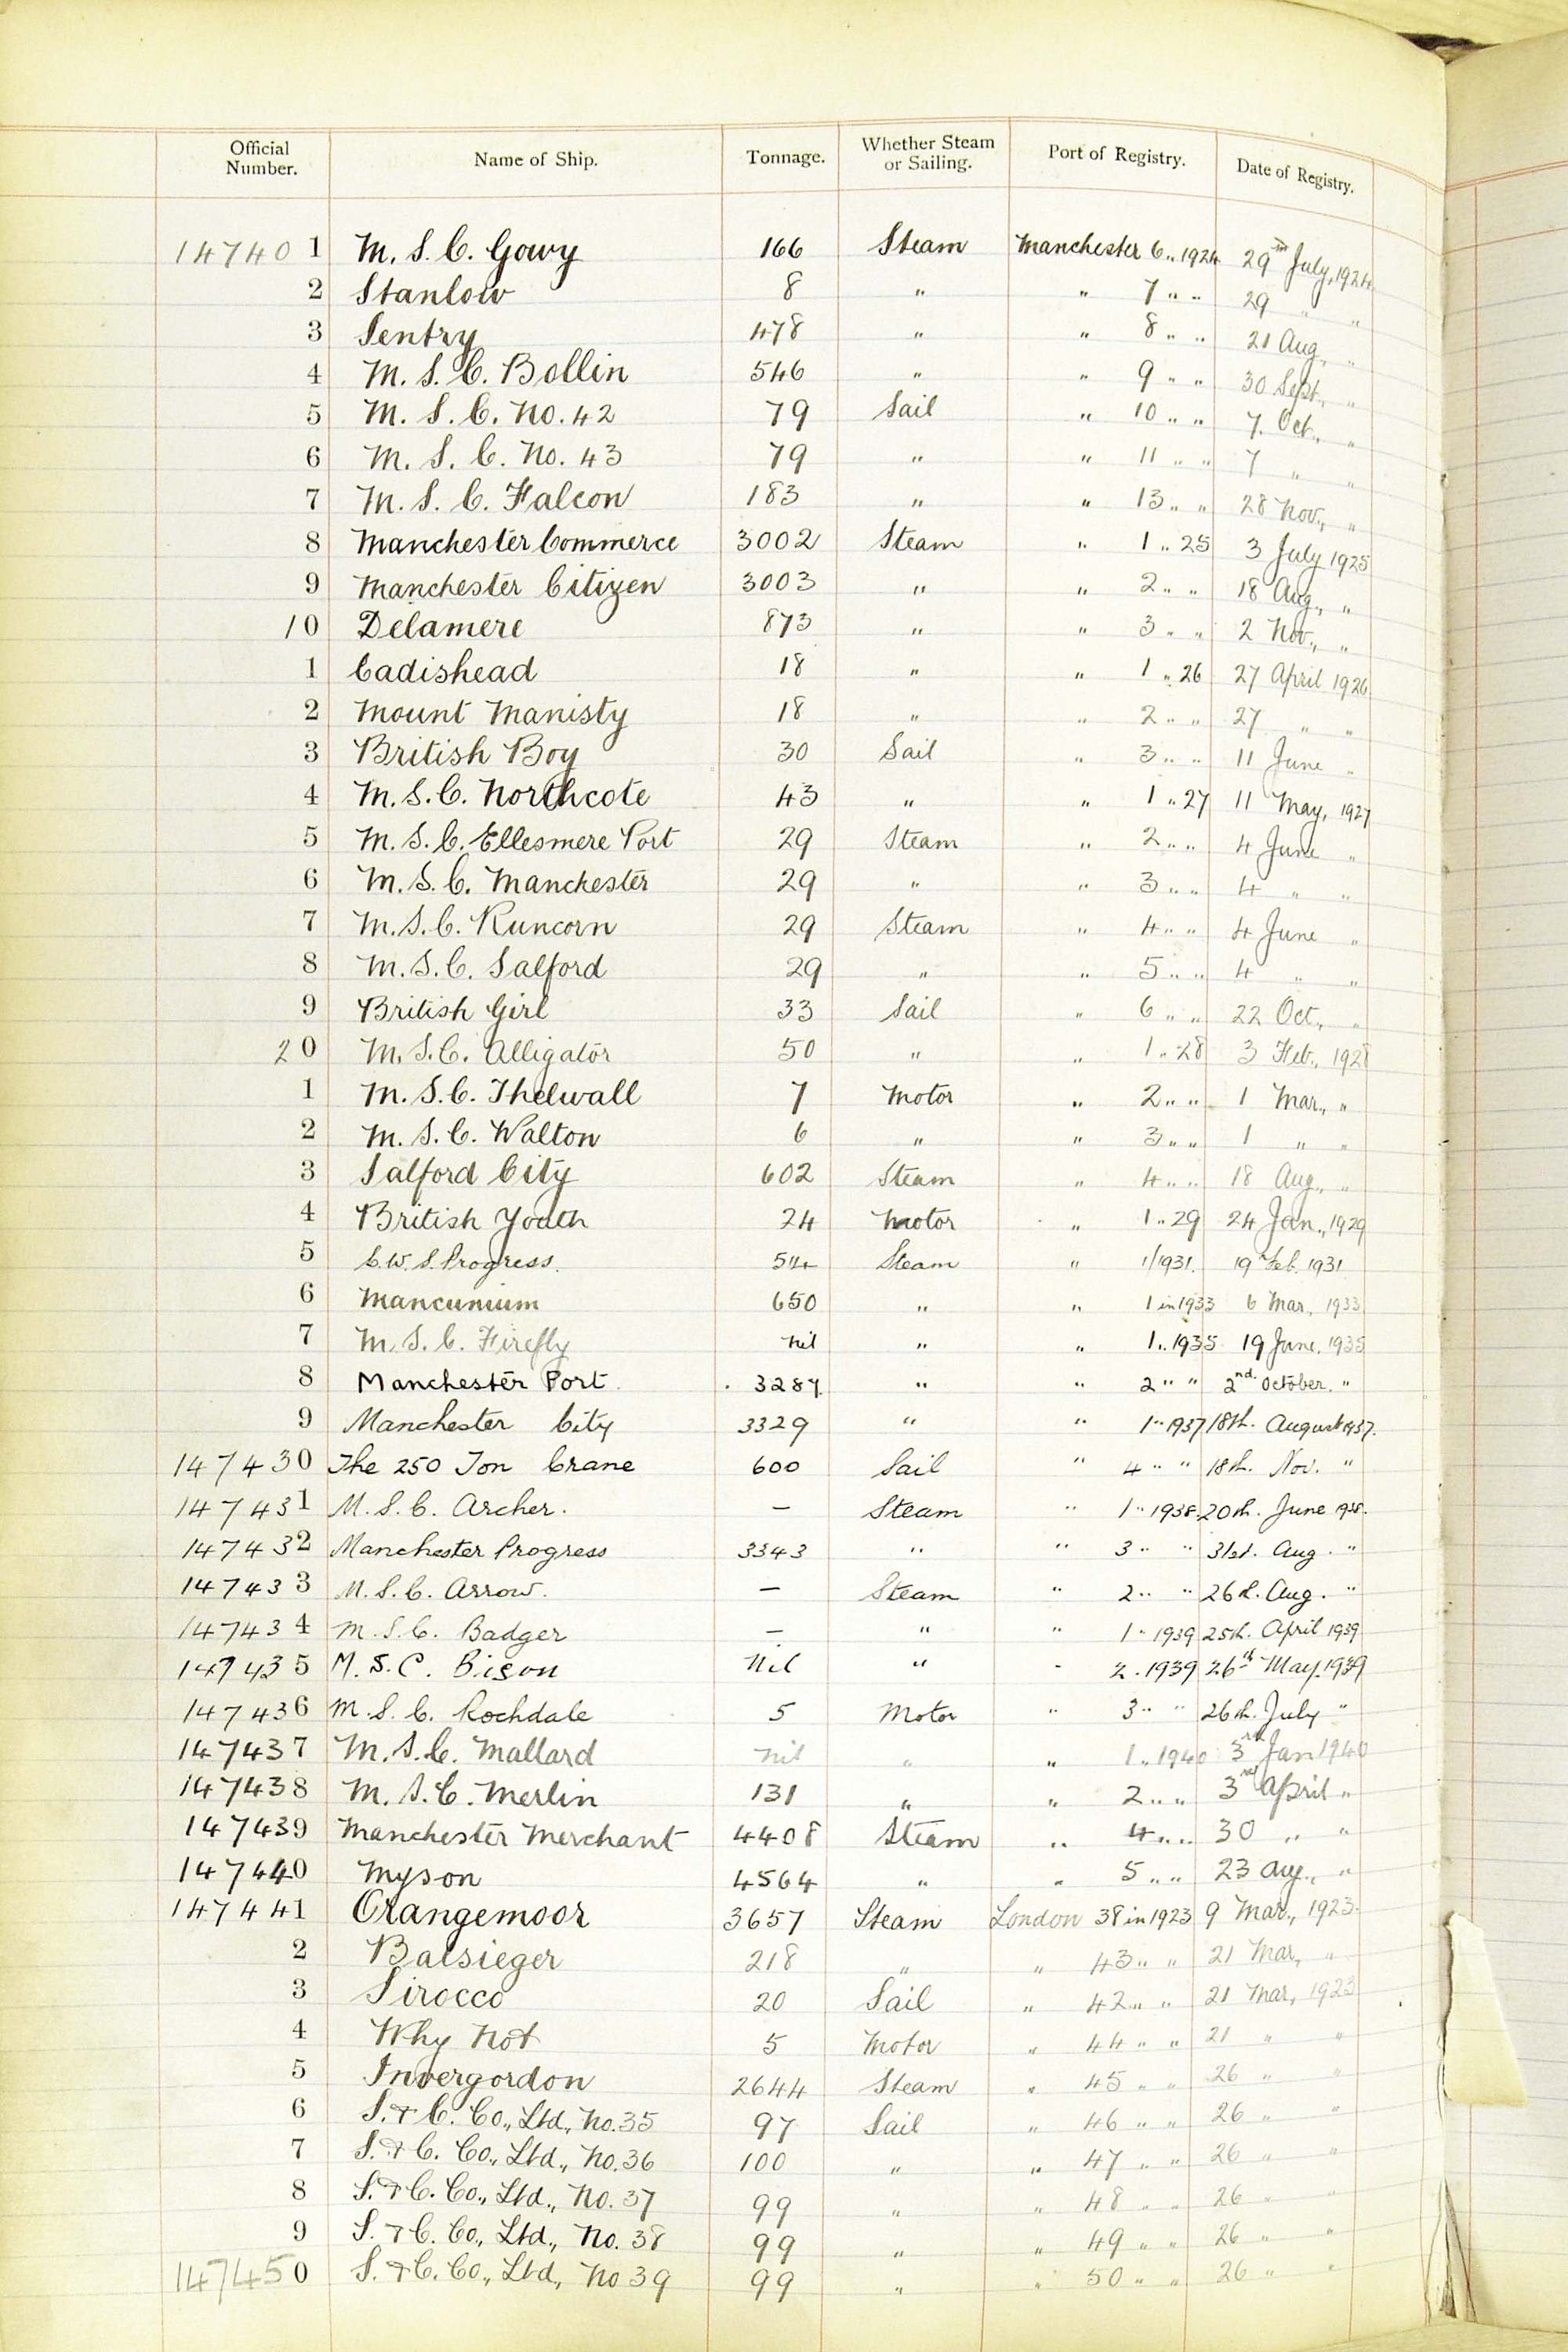 Official Number. Name of Ship. Tonnage. Whether Steam or Sailing. Port of Registry. Date of Registry.
147401 M. S. C. Gowy 166 Steam Manchester 6 „ 1924 29th July, 1924
2 Stanlow 8 „ „ 7 „ „ 29 „ „
3 Sentry 478 „ „ 8 „ „ 21 Aug., „
4 M. S. C. Bollin 546 „ „ 9 „ „ 30 Sept., „
5 M. S. C. No. 42 79 Sail „ 10 „ „ 7. Oct., „
6 M. S. C. No. 43 79 „ „ 11 „ „ 7 „ „
7 M. S. C. Falcon 183 „ „ 13 „ „ 28 Nov., „
8 Manchester Commerce 3002 Steam „ 1 „ 25 3 July 1925
9 Manchester Citizen 3003 „ „ 2 „ „ 18 Aug., „
10 Delamere 873 „ „ 3 „ „ 2 Nov., „
1 Cadishead 18 „ „ 1 „ 26 27 April 1926
2 Mount Manisty 18 „ „ 2 „ „ 27 „ „
3 British Boy 30 Sail „ 3 „ „ 11 June „
4 M. S. C. Northcote 43 „ „ 1 „ 27 11 May, 1927
5 M. S. C. Ellesmere Port 29 Steam „ 2 „ „ 4 June „
6 M. S. C. Manchester 29 „ „ 3 „ „ 4 „ „
7 M. S. C. Runcorn 29 Steam „ 4 „ „ 4 June „
8 M. S. C. Salford 29 „ „ 5 „ „ 4 „ „
9 British Girl 33 Sail „ 6 „ „ 22 Oct., „
20 M. S. C. Alligator 50 „ „ 1 „ 28 3 Feb., 1928
1 M. S. C. Thelwall 7 Motor „ 2 „ „ 1 Mar., „
2 M. S. C. Walton 6 „ „ 3 „ „ 1 „ „
3 Salford City 602 Steam „ 4 „ „ 18 Aug., „
4 British Youth 24 Motor „ 1 „ 29 24 Jan., 1929
5 C. W. S. Progress. 54 Steam „ 1/1931. 19 Feb. 1931
6 Mancunium 650 „ „ 1 in 1933 6 Mar., 1933
7 M. S. C. Firefly nil „ „ 1 „ 1935 19 June, 1935
8 Manchester Port. 3287. „ „ 2 „ „ 2nd. October. „
9 Manchester City 3329 „ „ 1 „ 1937 18th. August 1937.
147430 The 250 Ton Crane 600 Sail „ 4 „ „ 18th. Nov. „
147431 M. S. C. Archer. — Steam „ 1 „ 1938 20th. June 1938.
147432 Manchester Progress 3343 „ „ 3 „ „ 31st. Aug. „
147433 M. S. C. Arrow. — Steam „ 2 „ „ 26th. Aug. „
147434 M. S. C. Badger — „ „ 1 „ 1939 25th. April 1939
147435 M. S. C. Bison Nil „ „ 2 . 1939 26th May. 1939
147436 M. S. C. Rochdale 5 Motor „ 3 „ „ 26th. July „
147437 M. S. C. Mallard nil „ „ 1 „ 1940 3rd Jan 1940
147438 M. S. C. Merlin 131 „ „ 2 „ „ 3rd April „
147439 Manchester Merchant 4408 Steam „ 4 „ „ 30 „ „
147440 Myson 4564 „ „ 5 „ „ 23 Aug., „
147441 Orangemoor 3657 Steam London 38 in 1923 9 Mar., 1923.
2 Balsieger 218 „ „ 43 „ „ 21 Mar, „
3 Sirocco 20 Sail „ 42 „ „ 21 Mar, 1923
4 Why Not 5 Motor „ 44 „ „ 21 „ „
5 Invergordon 2644 Steam „ 45 „ „ 26 „ „
6 S. & C. Co., Ltd., No. 35 97 Sail „ 46 „ „ 26 „ „
7 S. & C. Co., Ltd., No. 36 100 „ „ 47 „ „ 26 „ „
8 S. & C. Co., Ltd., No. 37 99 „ „ 48 „ „ 26 „ „
9 S. & C. Co., Ltd., No. 38 99 „ „ 49 „ „ 26 „ „
147450 S. & C. Co., Ltd, No 39 99 „ „ 50 „ „ 26 „ „